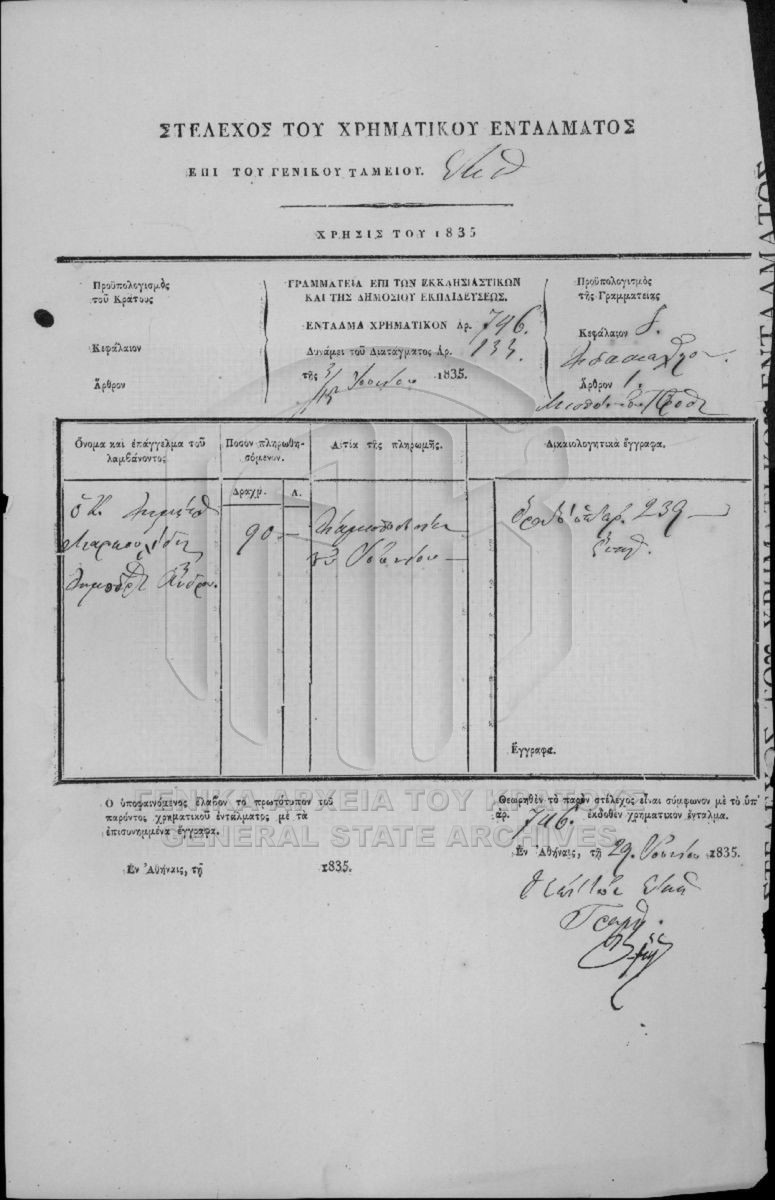 ΣΤΕΛΕΧΟΣ ΤΟΥ ΧΡΗΜΑΤΙΚΟΥ ΕΝΤΑΛΜΑΤΟΣ
ΕΠΙ ΤΟΥ ΓΕΝΙΚΟΥ ΤΑΜΕΙΟΥ.
ΧΡΗΣΙΣ ΤΟΥ 1835
Προϋπολογισμὸς
τοῦ Κράτους
Κεφάλαιον
Ἄρθρον
ΓΡΑΜΜΑΤΕΙΑ ΕΠΙ ΤΩΝ ΕΚΚΛΗΣΙΑΣΤΙΚΩΝ
ΚΑΙ ΤΗΣ ΔΗΜΟΣΙΟΥ ΕΚΠΑΙΔΕΥΣΕΩΣ.
ΕΝΤΑΛΜΑ ΧΡΗΜΑΤΙΚΟΝ Αρ. 746.
Δυνάμει τοῦ Διατάγματος Αρ. 133.
τῆς 3/15 Ἰουνίου 1835.
Προϋπολογισμὸς
τῆς Γραμματείας
Κεφάλαιον
Ἄρθρον 1.
Ὄνομα καὶ ἐπάγγελμα τοῦ
λαμβάνοντος
Ποσὸν πληρωθη-
σόμενον.
Αἰτία τῆς πληρωμῆς.
Δικαιολογητικὰ ἔγγραφα.
Δραχμ.
Λ.
ὁ Κ.
90 —
Ἰουνίου —
ἀρ. 239 —
Ἔγγραφα.
Ο ὑποφαινόμενος ἔλαβον τὸ πρωτότυπον τοῦ
παρόντος χρηματικοῦ ἐντάλματος μὲ τὰ
ἐπισυνημμένα ἔγγραφα.
Ἐν Ἀθήναις, τῇ 1835.
Θεωρηθὲν τὸ παρὸν στέλεχος εἶναι σύμφωνον μὲ τὸ ὑπ'
ἀρ. 746. ἐκδοθὲν χρηματικὸν ἔνταλμα.
Ἐν Ἀθήναις, τῇ 29. Ἰουνίου 1835.
ΓΕΝΙΚΑ ΑΡΧΕΙΑ ΤΟΥ ΚΡΑΤΟΥΣ
GENERAL STATE ARCHIVES
ΣΤΕΛΕΧΟΣ ΤΟΥ ΧΡΗΜΑΤΙΚΟΥ ΕΝΤΑΛΜΑΤΟΣ